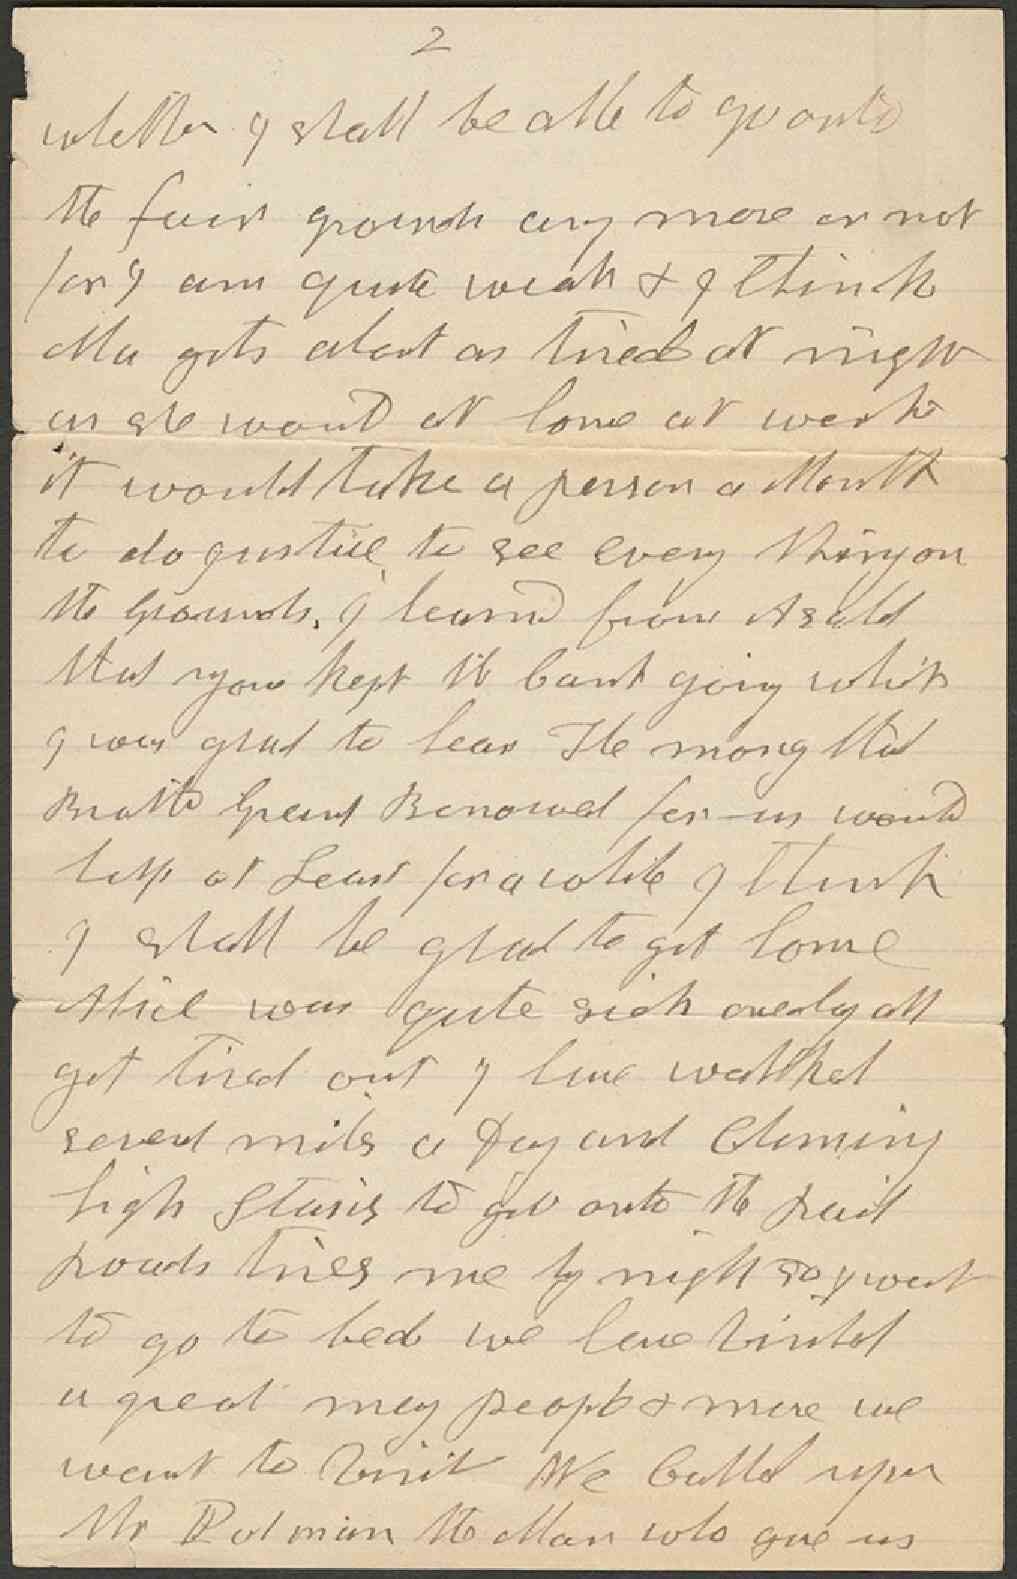 2
whether I shall be able to go onto
the fair grounds any more or not
for I am quite weak & I think
Ma gets about as tired at night
as she would at home at work
it would take a person a Month
to do justice to see every thing on
the Grounds. I learnd from
that you kept the going which
I was glad to hear The mony that
Grant Borrowed for us would
help at Least for a while I think
I shall be glad to get home
Alice was quite sick all
get tired out I have walked
severl miles a Day and Climing
high Stairs to get onto the Rail
Roads tires me by night so I want
to go to bed we have Visited
a great many people & more we
want to Visit We Called upon
Mr the Man who gave us